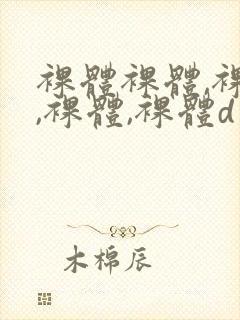 裸體裸體,裸
,裸體,裸體d
木棉辰